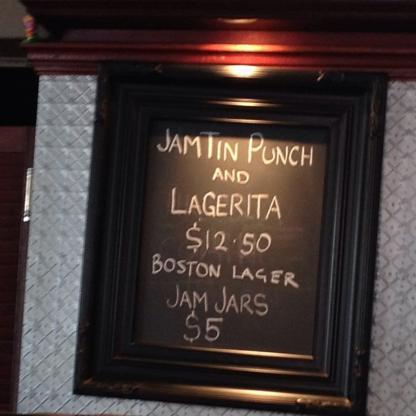 JAMTIN PUNCH
AND
LAGERITA
$12.50
BOSTON LAGER
JAM JARS
$5